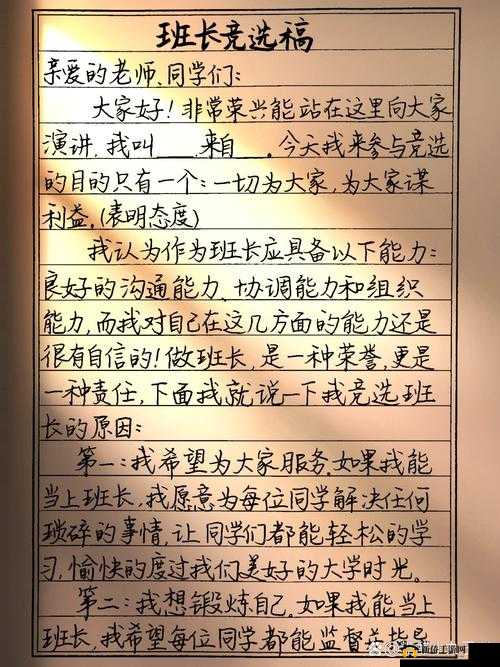 班长竞选稿
亲爱的老师、同学们:
大家好！非常荣兴能站在这里向大家
演讲,我叫___,来自___。今天我来参与竞选
的目的只有一个:一切为大家,为大家谋
利益。(表明态度)
我认为作为班长应具备以下能力:
良好的沟通能力、协调能力和组织
能力,而我对自己在这几方面的能力还是
很有自信的!做班长,是一种荣誉,更是
一种责任,下面我就说一下我竞选班
长的原因:
第一:我希望为大家服务。如果我能
当上班长,我愿意为每位同学解决任何
琐碎的事情,让同学们都能轻松的学
习,愉快的度过我们美好的大学时光。
第二:我想锻炼自己。如果我能当上
班长,我希望每位同学都能监督并指导